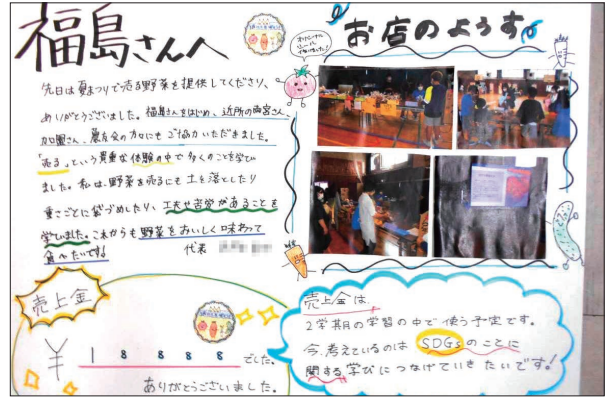 福島さんへ
先日は夏まつりで売る野菜を提供してくださり、
ありがとうございました。福島さんをはじめ、近所の雨宮さん、
加園さん、農友会の方々にもご協力いただきました。
「売る」という貴重な体験の中で多くのことを学び
ました。私は、野菜を売るにも土を落としたり
重さごとに袋づめしたり、工夫や苦労があることを
学びました。これからも野菜をおいしく味わって
食べたいです
代表
お店のようす
売上金
¥18888でした。
ありがとうございました。
売上金は、
2学期の学習の中で使う予定です。
今、考えているのはSDGsのことに
関する学びにつなげていきたいです!